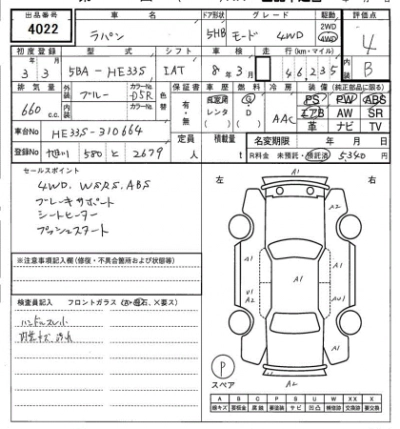 出品番号 車名 ドア形状 グレード 駆動 評価点
4022 ラパン 5HB モード 4WD 2WD 4WD 4
初度登録 型式 シフト 車検 走行(km・マイル) 内装
3年3月 5BA-HE33S IAT 8年3月 46,235 B
排気量 外装色 カラーNo. 色替 保証書 車歴 燃料 冷房 装備(純正部品に限る)
660c.c. ブルー DSR 有・無 自家用 レンタ ( ) G D ( ) AAC PS PW ABS
内装 カラーNo. エアB AW SR
革 ナビ TV
車台No HE33S-310664 定員 人 積載量 t 名変期限 年 月 日
登録No 旭川 580 と 2679 R料金 未預託・預託済 5,340円
セールスポイント
4WD、WSRS、ABS
ブレーキサポート
シートヒーター
プッシュスタート
※注意事項記入欄(修復・不具合箇所および状態等)
検査員記入 フロントガラス
ハンドルスレ小
内装キズ 汚れ
左 右
A1
A2
A1
A1
A1
A1
A2
P
スペア
A2
A B C P S U W X XX
線キズ